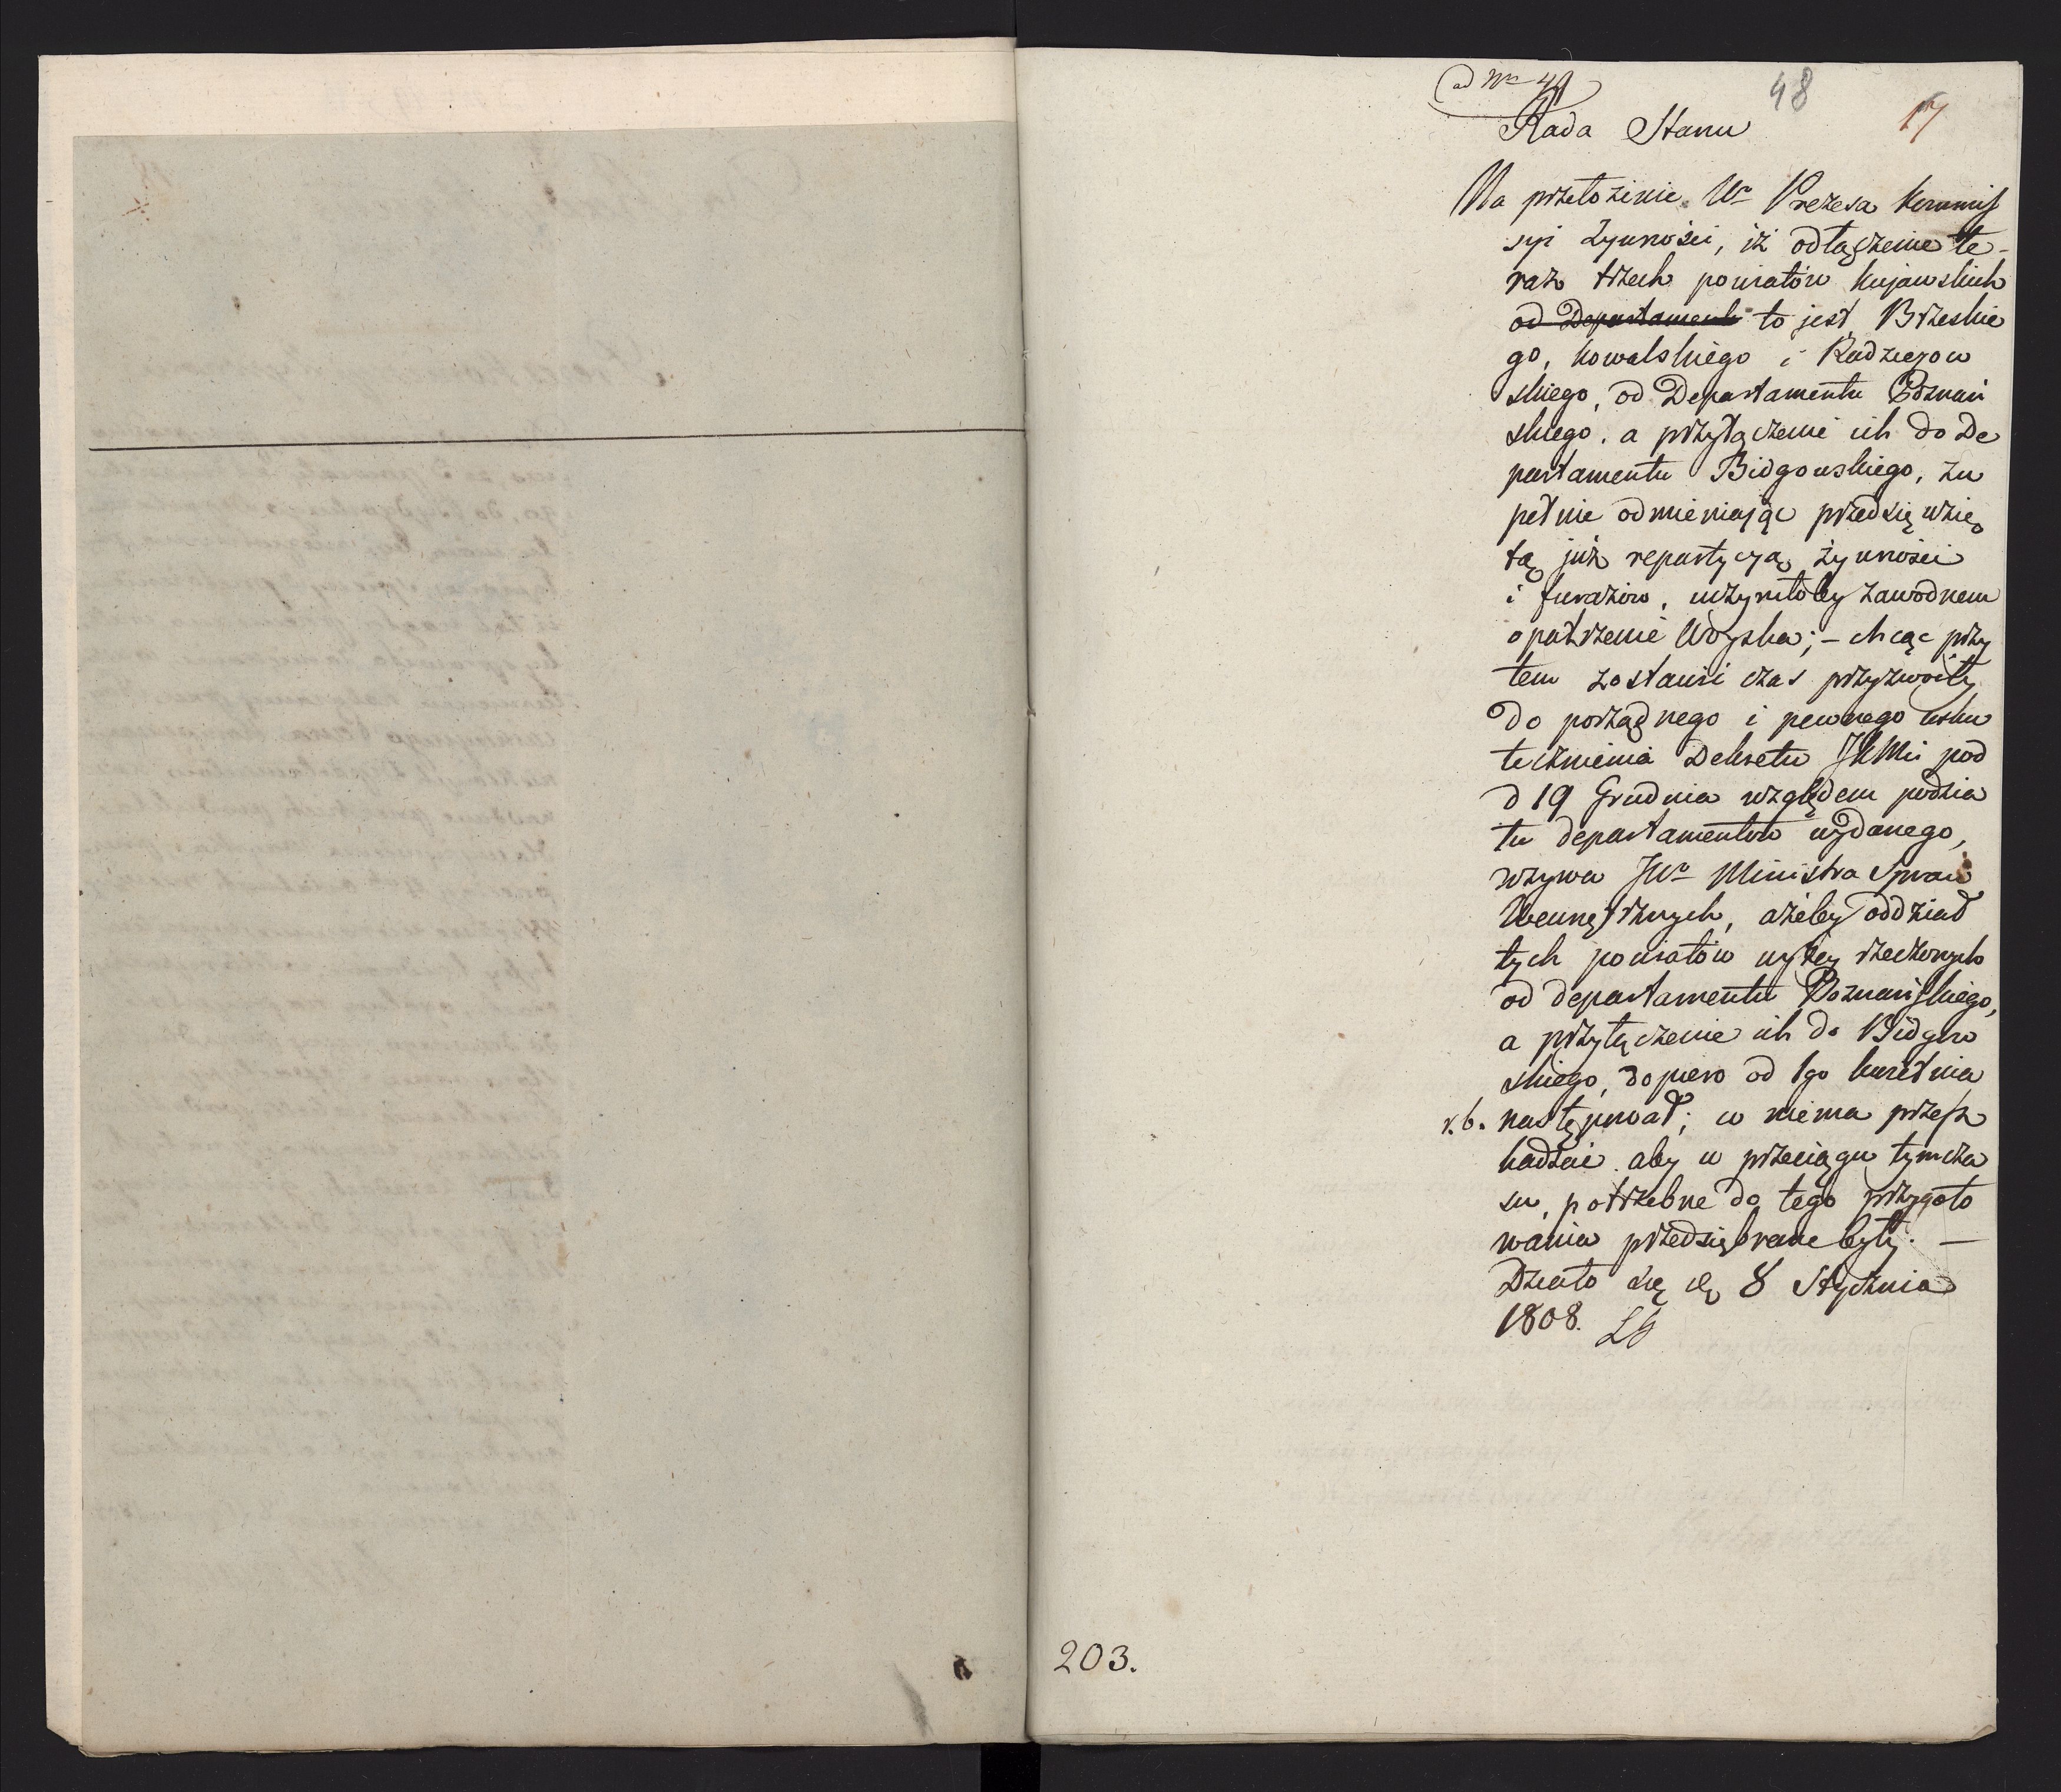 ad Nro 49
48
17
Rada Stanu
Na przełożenie Wo Prezesa Kommis
syi Żywności, iż odłączenie te-
raz trzech powiatów kujawskich
od Departamentu to jest Brzeskie
go, Kowalskiego i Radziejow
skiego, od Departamentu Poznań
skiego, a przyłączenie ich do De
partamentu Bidgowskiego, zu
pełnie odmieniając przedsięwzię
tą już repartycją żywności
i furażów, uczyniłoby zawodnem
opatrzenie Woyska; – chcąc przy
tem zostawić czas przyzwoity
do porządnego i pewnego usku
tecznienia Dekretu JKMci pod
d 19 Grudnia względem podzia
łu departamentów wydanego,
wzywa JWo Ministra Spraw
Wewnętrznych, ażeby oddział
tych powiatów wyżey rzeczonych
od departamentu Poznańskiego,
a przyłączenie ich do Bidgow
skiego, dopiero od 1go kwietnia
r.b. następował; co niema przesz
kadzać aby w przeciągu tymcza
su, potrzebne do tego przygoto
wania przedsiębrane były. —
Działo się d 8 Stycznia
1808.
203.